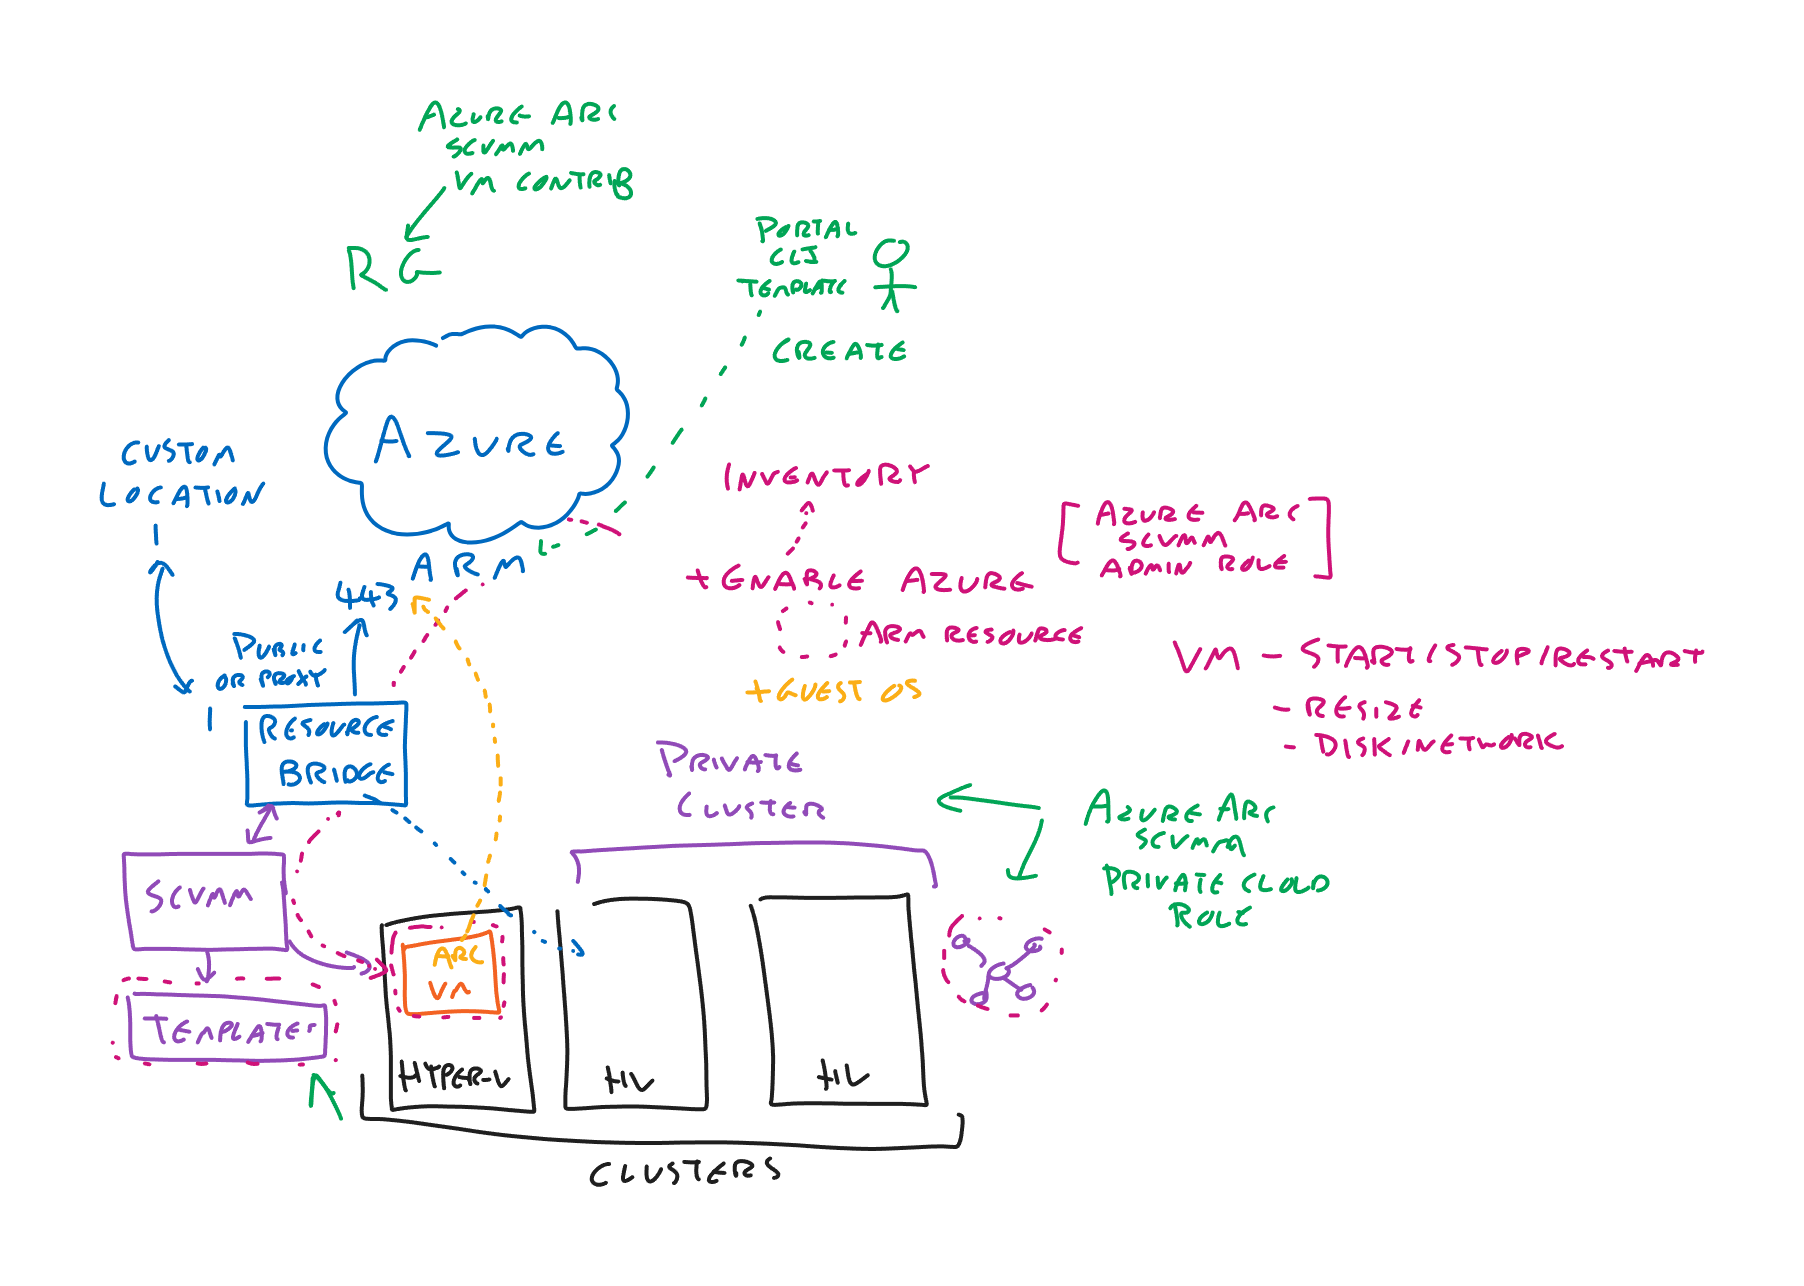 AZURE ARC
SCVMM
VM CONTRIB
RG
PORTAL
CLI
TEMPLATE
CREATE
AZURE
CUSTOM
LOCATION
ARM
443
PUBLIC
OR PROXY
RESOURCE
BRIDGE
INVENTORY
+ ENABLE AZURE
ARM RESOURCE
+GUEST OS
[AZURE ARC
SCVMM
ADMIN ROLE]
VM - START/STOP/RESTART
- RESIZE
- DISK/NETWORK
PRIVATE
CLUSTER
AZURE ARC
SCVMM
PRIVATE CLOUD
ROLE
SCVMM
TEMPLATES
ARC
VM
HYPER-V
HV
HV
CLUSTERS